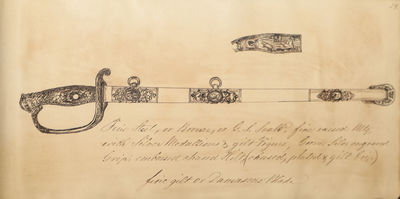 Fine Steel, or Bronze, or G. S. Scabb. fine raised Mtg
with Silver Medallions & gilt Figures, German Silver engraved
Grip, embossed chased Hilt (chased, plated & gilt
fine gilt or Damascus Blade.